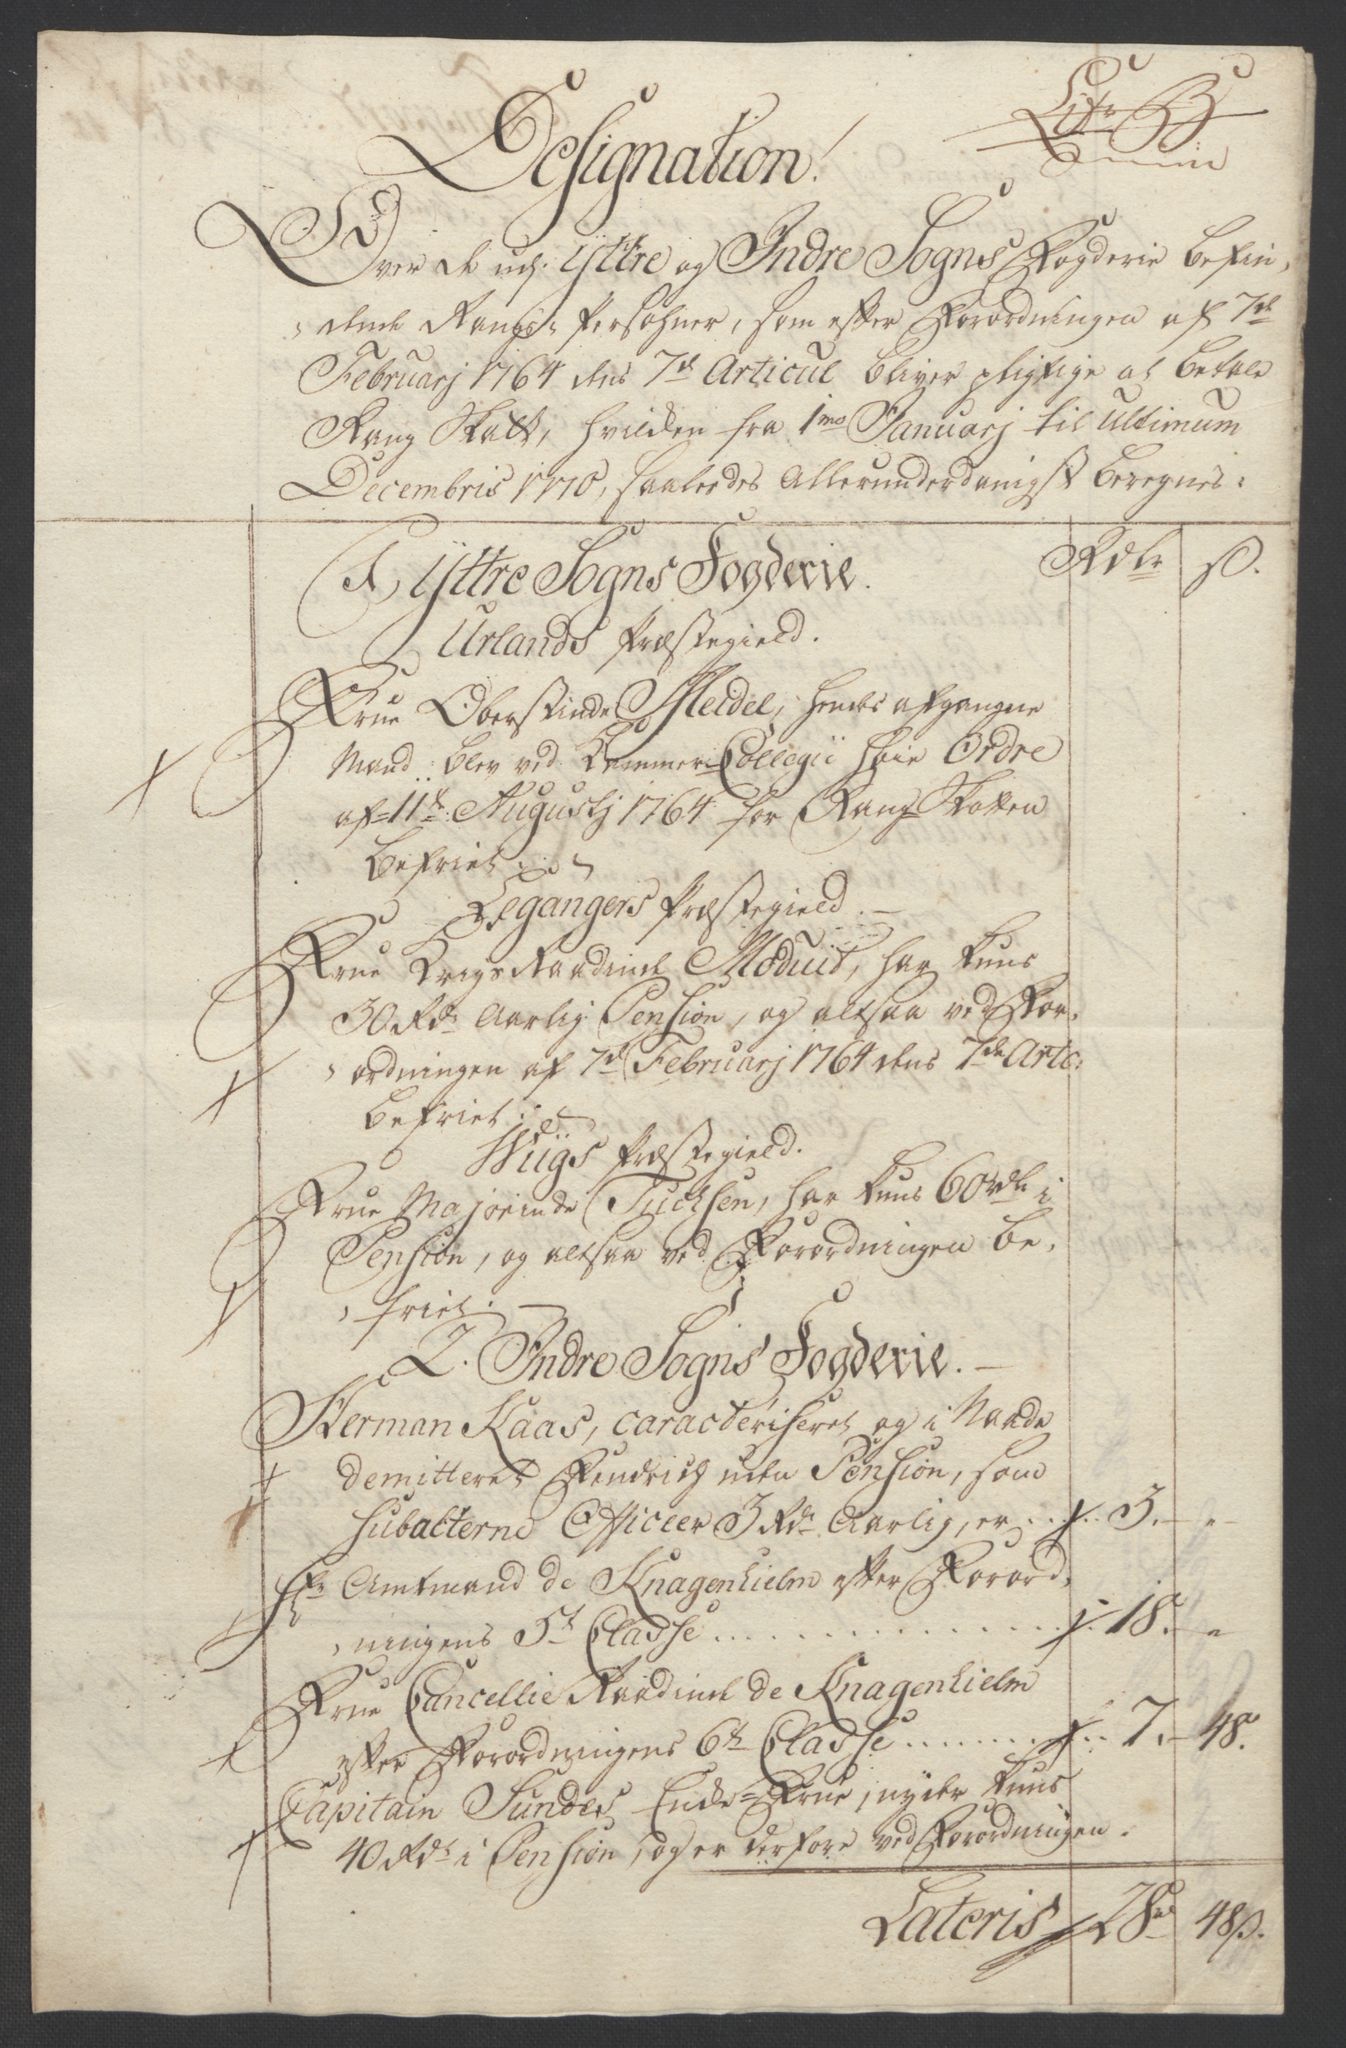 Litr B
Designation!
Over de udj Ÿttre og Indre Sogns Fogderie befin,
,dende Rangs-Persohner, som efter Forordningen af 7de
Februarj 1764 dens 7de Articul bliver pligtige at betale
Rang Skatt, hvilken fra 1mo Januarj til Ultimum
Decembris 1770, saaledes Allerunderdanigst beregnes:
1, Ÿttre Sogns Fogderie. Rdlr ß.
Urlands Præstegield.
Frue Oberstinde Heidel, hendes afgangne
Mand blev ved Kammer-Collegii høie Ordre
af 11te Augustj 1764 for Rang Skatten
befriet.
Legangers Præstegield.
Frue KrigsRaadinde Moduit, har kuns
30 Rdr Aarlig Pension, og altsaa ved For,
,ordningen af 7de Februarj 1764 dens 7de Artc:
befriet.
Wiigs Præstegield.
Frue Majorinde Tuchsen, har kuns 60 rdr i
Pension, og altsaa ved Forordningen be,
,friet.
2. Indre Sogns Fogderie.
Herman Kaas, caracteriseret og i Naade
demitteret Fendrich uden Pension, som
subalterne Officeer 3 Rdr Aarlig, er . . 3. -
Hr Amtmand de Knagenhielm efter Forord,
,ningens 5te Classe . . . . . 18. -
Frue CancellieRaadinde de Knagenhielm
efter Forordningens 6te Classe . . . . . 7. - 48.
Capitain Sunders Enke-Frue, nyder kuns
40 Rdr i Pension, og er derfore ved Forordningen.
Lateris 28rd 48ß.